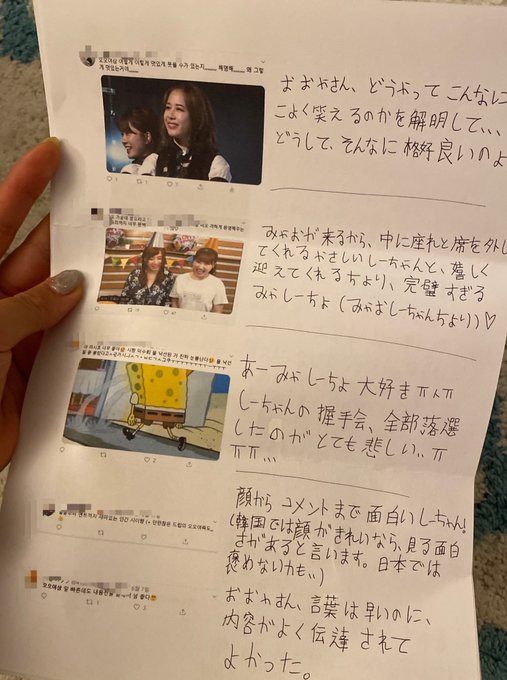 오오야상 어떻게 이렇게 멋있게 웃을 수가 있는지........ 해명해........ 왜 그렇
게 멋있는거야......
おおやさん、どうやってこんなに
こよく笑えるのかを解明して、、、
どうして、そんなに格好良いのよ
みゃおが来るから、中に座れと席を外し
てくれるやさしいしーちゃんと、嬉しく
迎えてくれるちより、完璧すぎる
みゃしーちょ(みゃおしーちゃんちより)♡
시짱 악수회 올 낙선된 거 진짜 눈물난다
あーみゃしーちょ大好きㅠㅅㅠ
しーちゃんの握手会、全部落選
したのがとても悲しい、、ㅠ
ㅠㅠ、、、
顔からコメントまで面白いしーちゃん!
(韓国では顔がきれいなら、見る面白
さがあると言います。日本では
褒めないかも、、)
5월 7일
오오야상 말 빠른데도 내용전달 잘돼서 넘 좋다
おおやさん、言葉は早いのに、
内容がよく伝達されて
よかった。